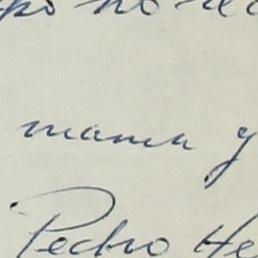 no
mama y
Pedro He